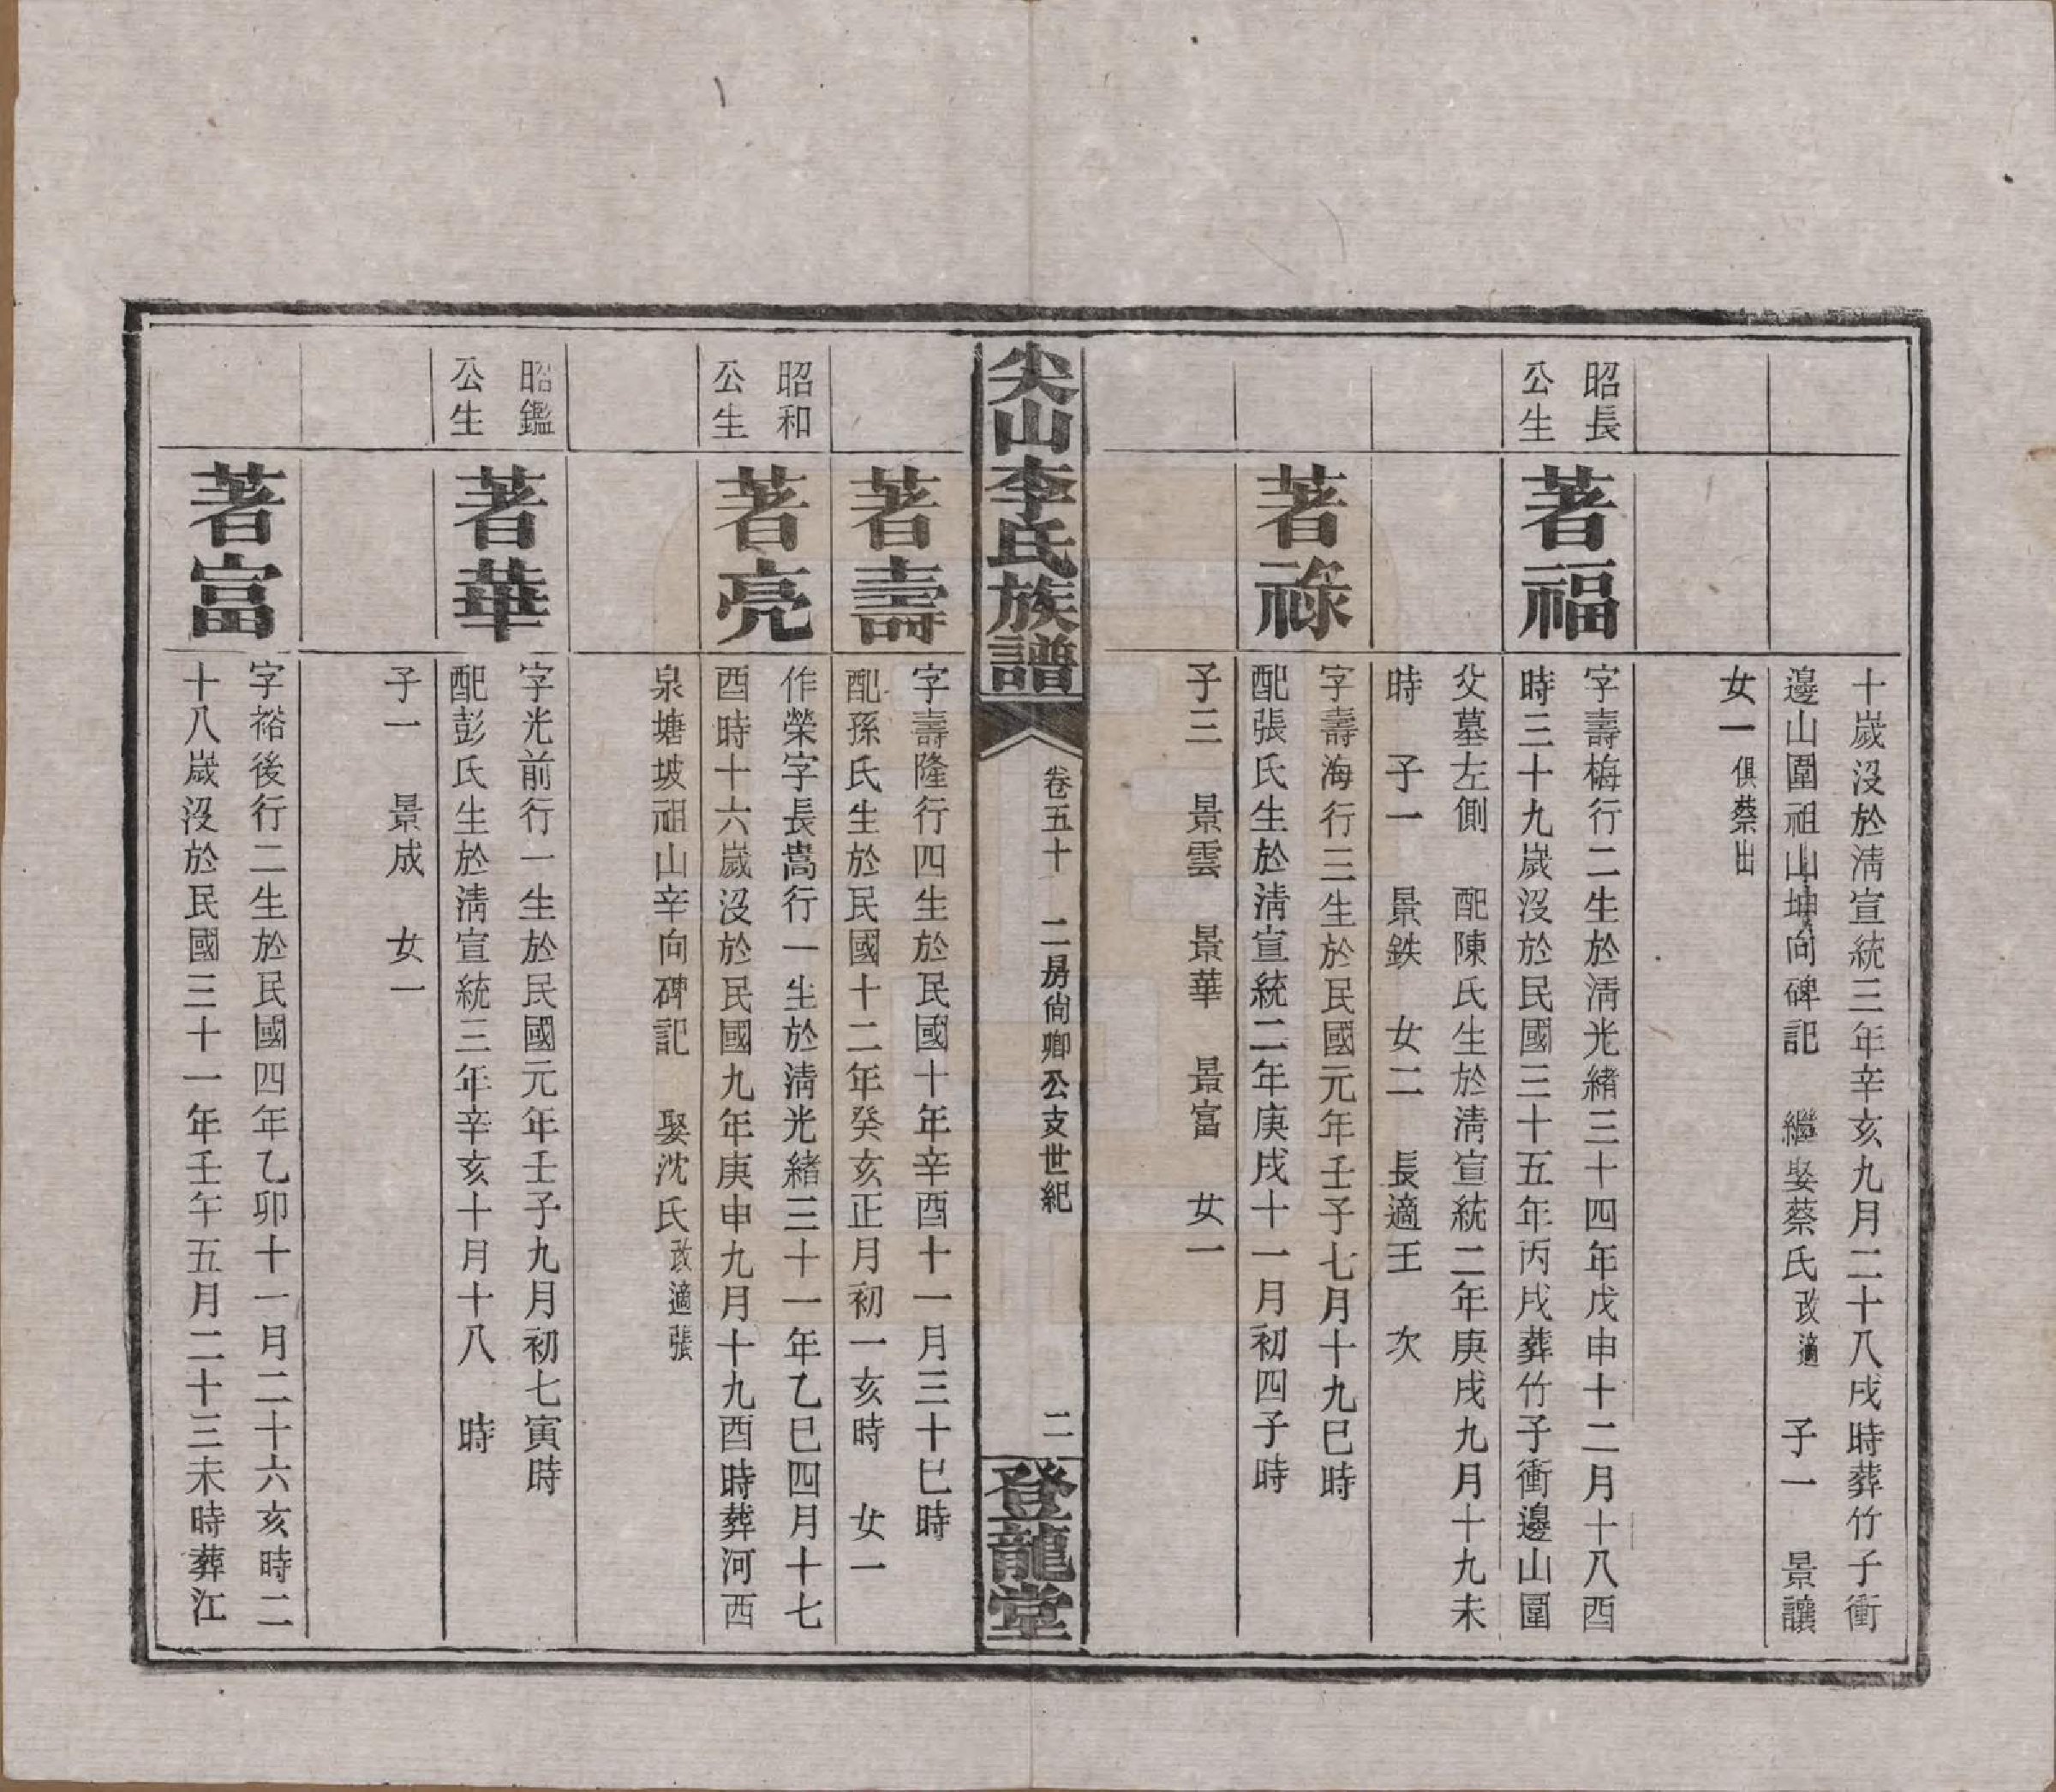 十歲沒於淸宣統三年辛亥九月二十八戌時葬竹子衝
邊山圍祖山坤向碑記　繼娶蔡氏改適　子一　景讓
女一俱蔡出
昭長
公生
著福
字壽梅行二生於淸光緒三十四年戊申十二月十八酉
時三十九歲沒於民國三十五年丙戌葬竹子衝邊山圍
父墓左側　配陳氏生於淸宣統二年庚戌九月十九未
時　子一　景鉄　女二　長適王　次
著祿
字壽海行三生於民國元年壬子七月十九巳時
配張氏生於淸宣統二年庚戌十一月初四子時
子三　景雲　景華　景富　女一
尖山李氏族譜
卷五十　二房尙卿公支世紀
二
登龍堂
著壽
字壽隆行四生於民國十年辛酉十一月三十巳時
配孫氏生於民國十二年癸亥正月初一亥時　女一
昭和
公生
著亮
作榮字長嵩行一生於淸光緒三十一年乙巳四月十七
酉時十六歲沒於民國九年庚申九月十九酉時葬河西
泉塘坡祖山辛向碑記　娶沈氏改適張
昭鑑
公生
著華
字光前行一生於民國元年壬子九月初七寅時
配彭氏生於淸宣統三年辛亥十月十八　時
子一　景成　女一
著富
字裕後行二生於民國四年乙卯十一月二十六亥時二
十八歲沒於民國三十一年壬午五月二十三未時葬江